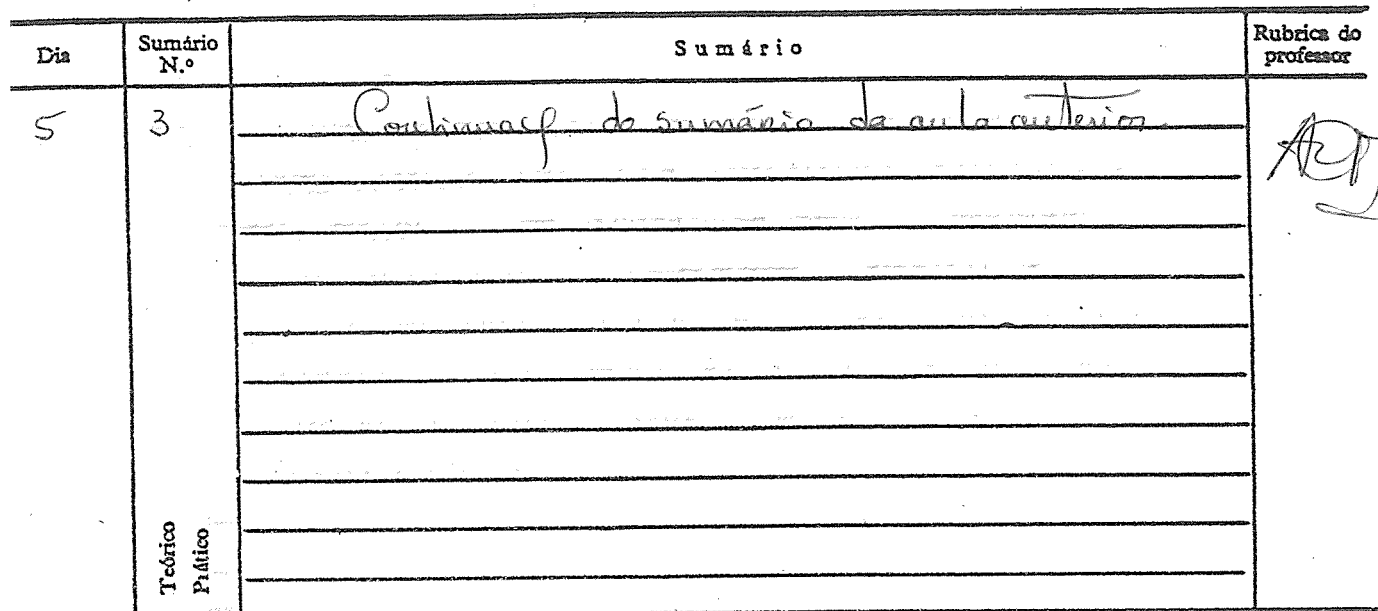 Dia Sumário N.º Sumário Rubrica do professor
5 3 Continuação do sumário da aula anterior.
Teórico
Prático